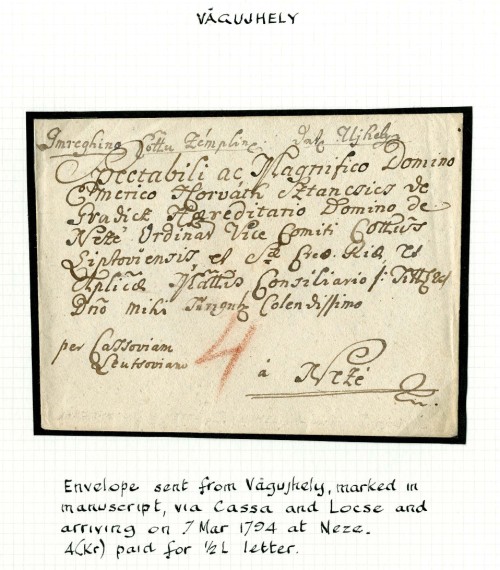 VÁGUJHELY
Imreghino Cottu Zémplin Ujhely
Spectabili ac Magnifico Domino
Emerico Horváth Sztancsics de
Gradeck Hæreditario Domino de
Nezé Ordinar Vice Comiti Cottus
Liptoviensis, et Sæ Cæo. Riæ, et
Aplicæ Mattis Consiliario
Dnō mihi Colendissimo
per Cassoviam
Leutsoviam
4
á Nezé
Envelope sent from Vágujhely, marked in
manuscript, via Cassa and Locse and
arriving on 7 Mar 1794 at Neze.
4(Kr) paid for ½L letter.